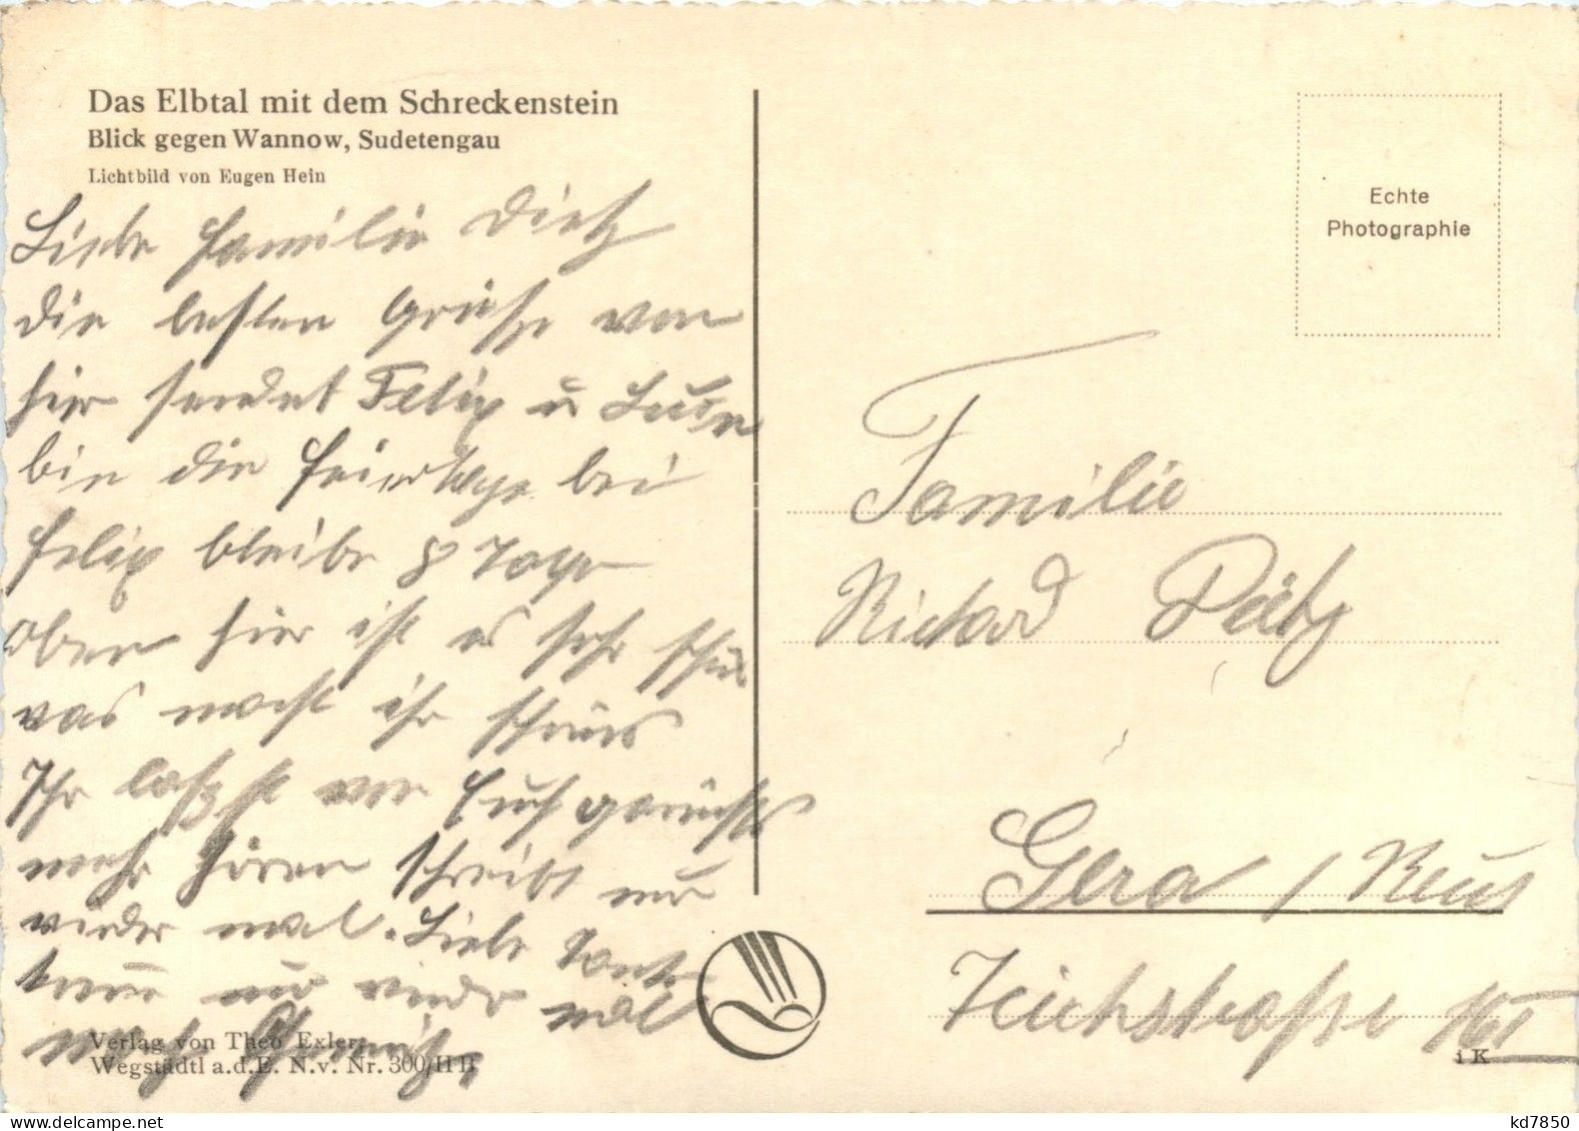 Das Elbtal mit dem Schreckenstein
Blick gegen Wannow, Sudetengau
Lichtbild von Eugen Hein
Liebe Familie Dietz
die besten Grüsse von
hier sendet Felix u
bin die Feiertage bei
Felix bleibe 8 Tage
oben hier ist es sehr schön
was macht ihr schönes
Ihr lasst von Euch garnichts
mehr hören schreibt nur
wieder mal. Liebe Tante
komme nur wieder mal
nach
Verlag von Theo Exler,
Wegstädtl a.d.E. N.v. Nr. 300/H B
Echte
Photographie
Familie
Richard
Gera / Reus
Teichstraße 16I
i K
delcampe.net
kd7850